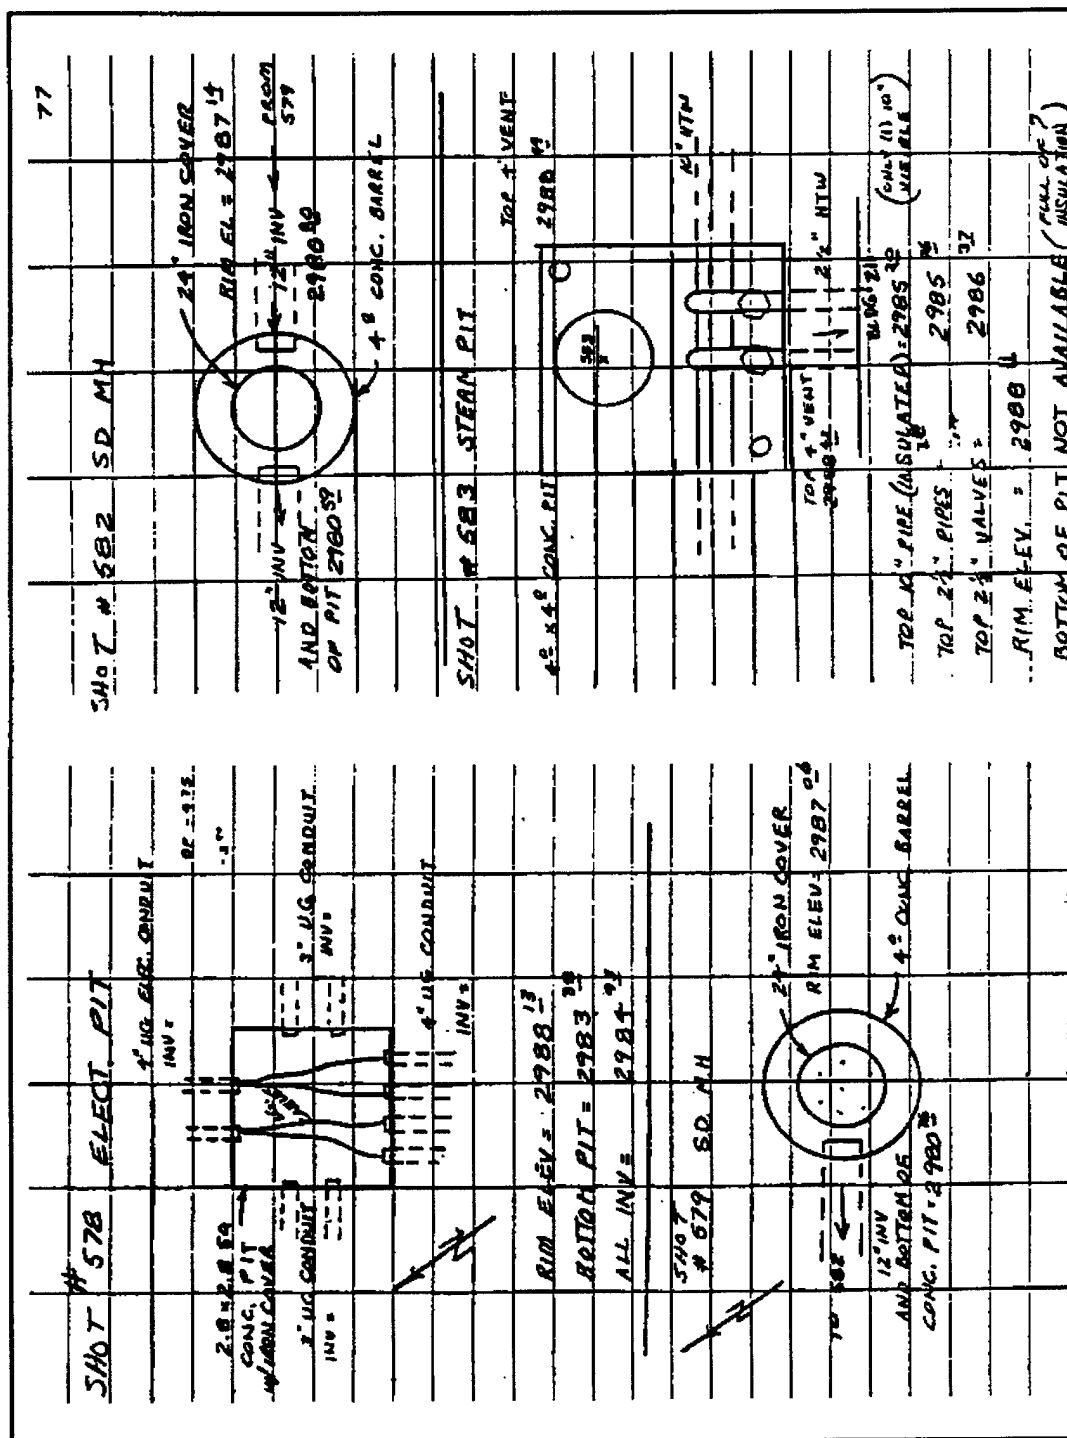 SHOT # 578 ELECT. PIT
4" UG ELEC. CONDUIT
INV =
2.8 x 2.8 SQ
CONC. PIT
W/IRON COVER
3" UG CONDUIT
INV =
3" U.G. CONDUIT
INV =
4" UG CONDUIT
INV =
RIM ELEV = 2988 13
BOTTOM PIT = 2983
ALL INV = 2984
SHOT
# 579 SD M.H
24" IRON COVER
RIM ELEV = 2987 06
4º CONC. BARREL
TO 582
12" INV
AND BOTTOM OF
CONC. PIT = 2980
77
SHOT # 582 SD MH
24" IRON COVER
RIM EL = 2987 14
12" INV FROM
2980 579
4º CONC. BARREL
12" INV
AND BOTTOM
OF PIT 2980 59
SHOT # 583 STEAM PIT
4º x 4º CONC. PIT
TOP 4" VENT
2988
583
10" HTW
TOP 4" VENT
2½" HTW
BLDG 211
TOP 10" PIPE (INSULATED) = 2985 (ONLY (1) 10" VISIBLE)
TOP 2½" PIPES 2985
TOP 2½" VALVES = 2986
RIM ELEV. = 2988
BOTTOM OF PIT NOT AVAILABLE (FULL OF ? INSULATION)